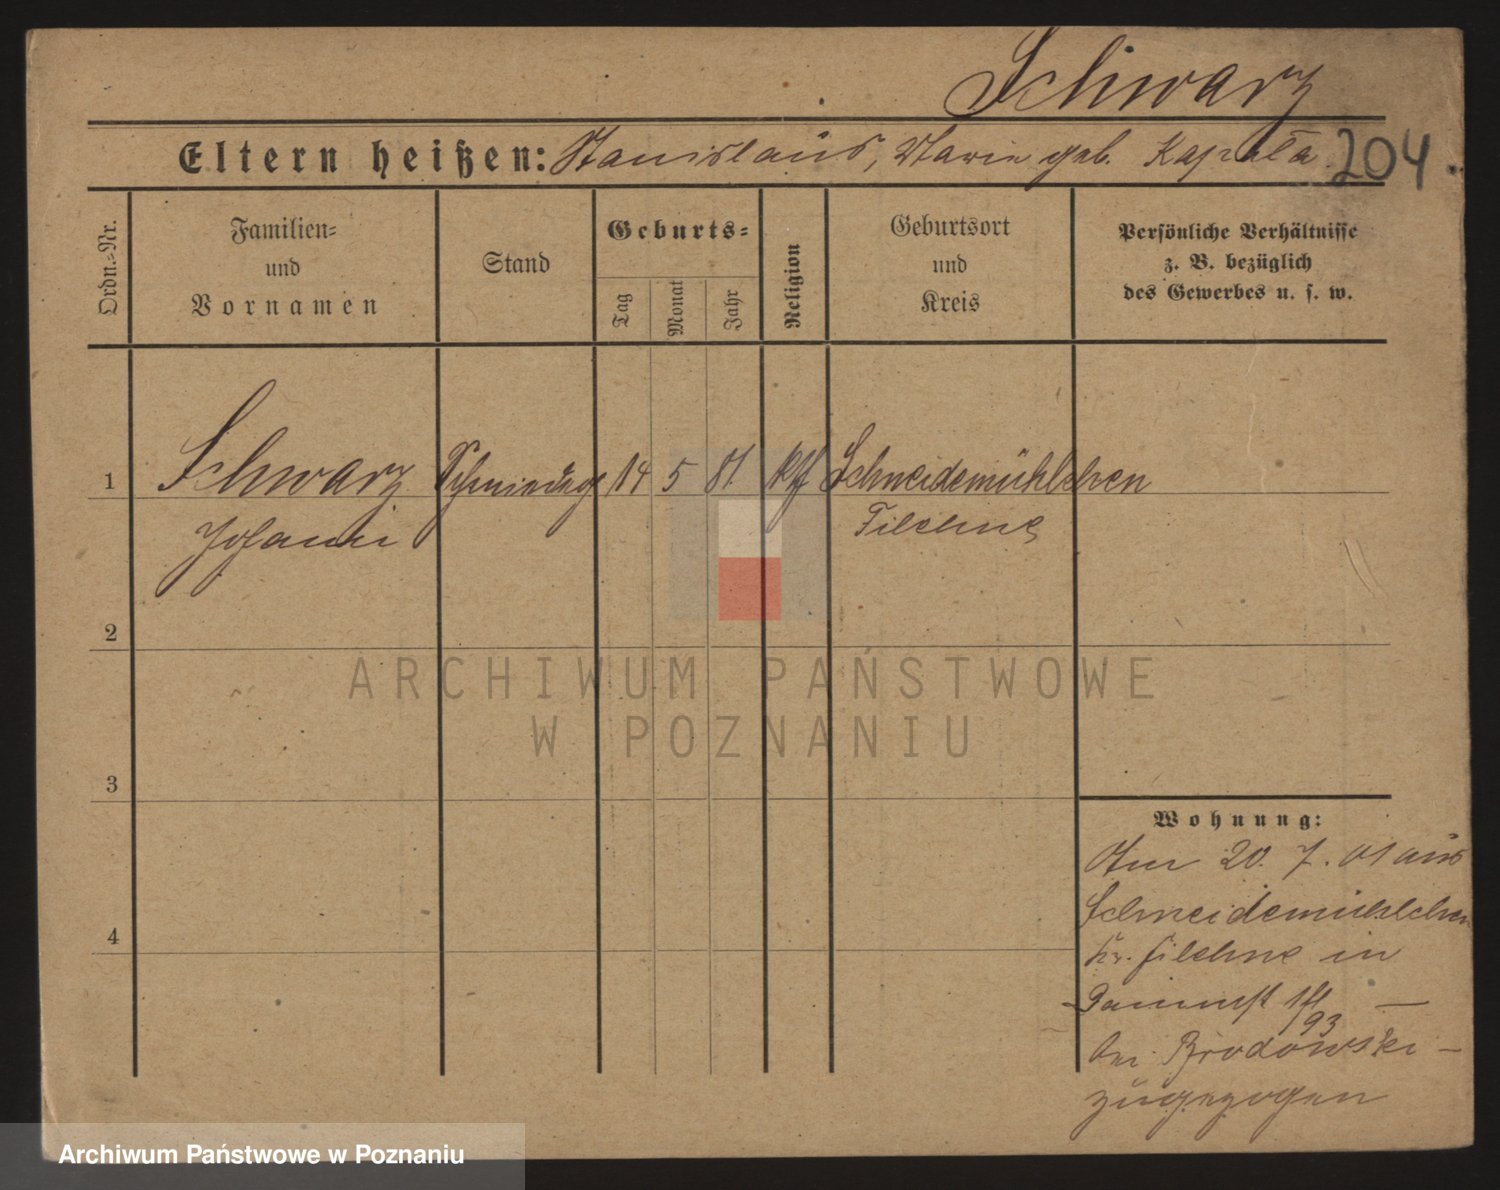 Schwarz
Eltern heißen: Stanislaus, Marie geb. Kapała
204
Ordn.-Nr.
Familien-
und
Vornamen
Stand
Geburts-
Tag
Monat
Jahr
Religion
Geburtsort
und
Kreis
Persönliche Verhältnisse
z. B. bezüglich
des Gewerbes u. s. w.
1
Schwarz
14 5 81 kth Schneidemühlchen
Johann
Filehne
2
3
4
Wohnung:
Am 20. 7. 01 aus
Schneidemühlchen
Kr. Filehne in
93
bei Brodowski -
zugezogen
ARCHIWUM PAŃSTWOWE
W POZNANIU
Archiwum Państwowe w Poznaniu